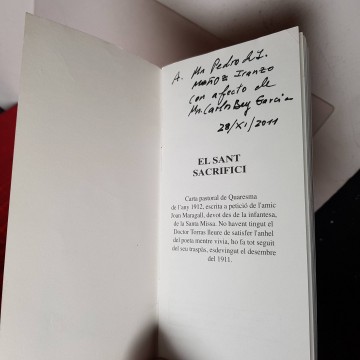 A. Mn Pedro de L.
Muñoz Iranzo
con afecto de
Mn. Carlos Bey Garcia
28/XI/2011
EL SANT
SACRIFICI
Carta pastoral de Quaresma
de l'any 1912, escrita a petició de l'amic
Joan Maragall, devot des de la infantesa,
de la Santa Missa. No havent tingut el
Doctor Torras lleure de satisfer l'anhel
del poeta mentre vivia, ho fa tot seguit
del seu traspàs, esdevingut el desembre
del 1911.